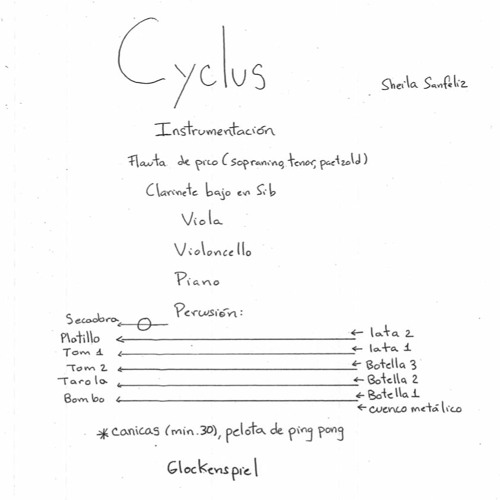 Cyclus
Sheila Sanfeliz
Instrumentación
Flauta de pico (sopranino, tenor, paetzold)
Clarinete bajo en Sib
Viola
Violoncello
Piano
Percusión:
Secadora
Platillo ← lata 2
Tom 1 ← lata 1
Tom 2 ← Botella 3
Tarola ← Botella 2
Bombo ← Botella 1
← cuenco metálico
*canicas (min. 30), pelota de ping pong
Glockenspiel